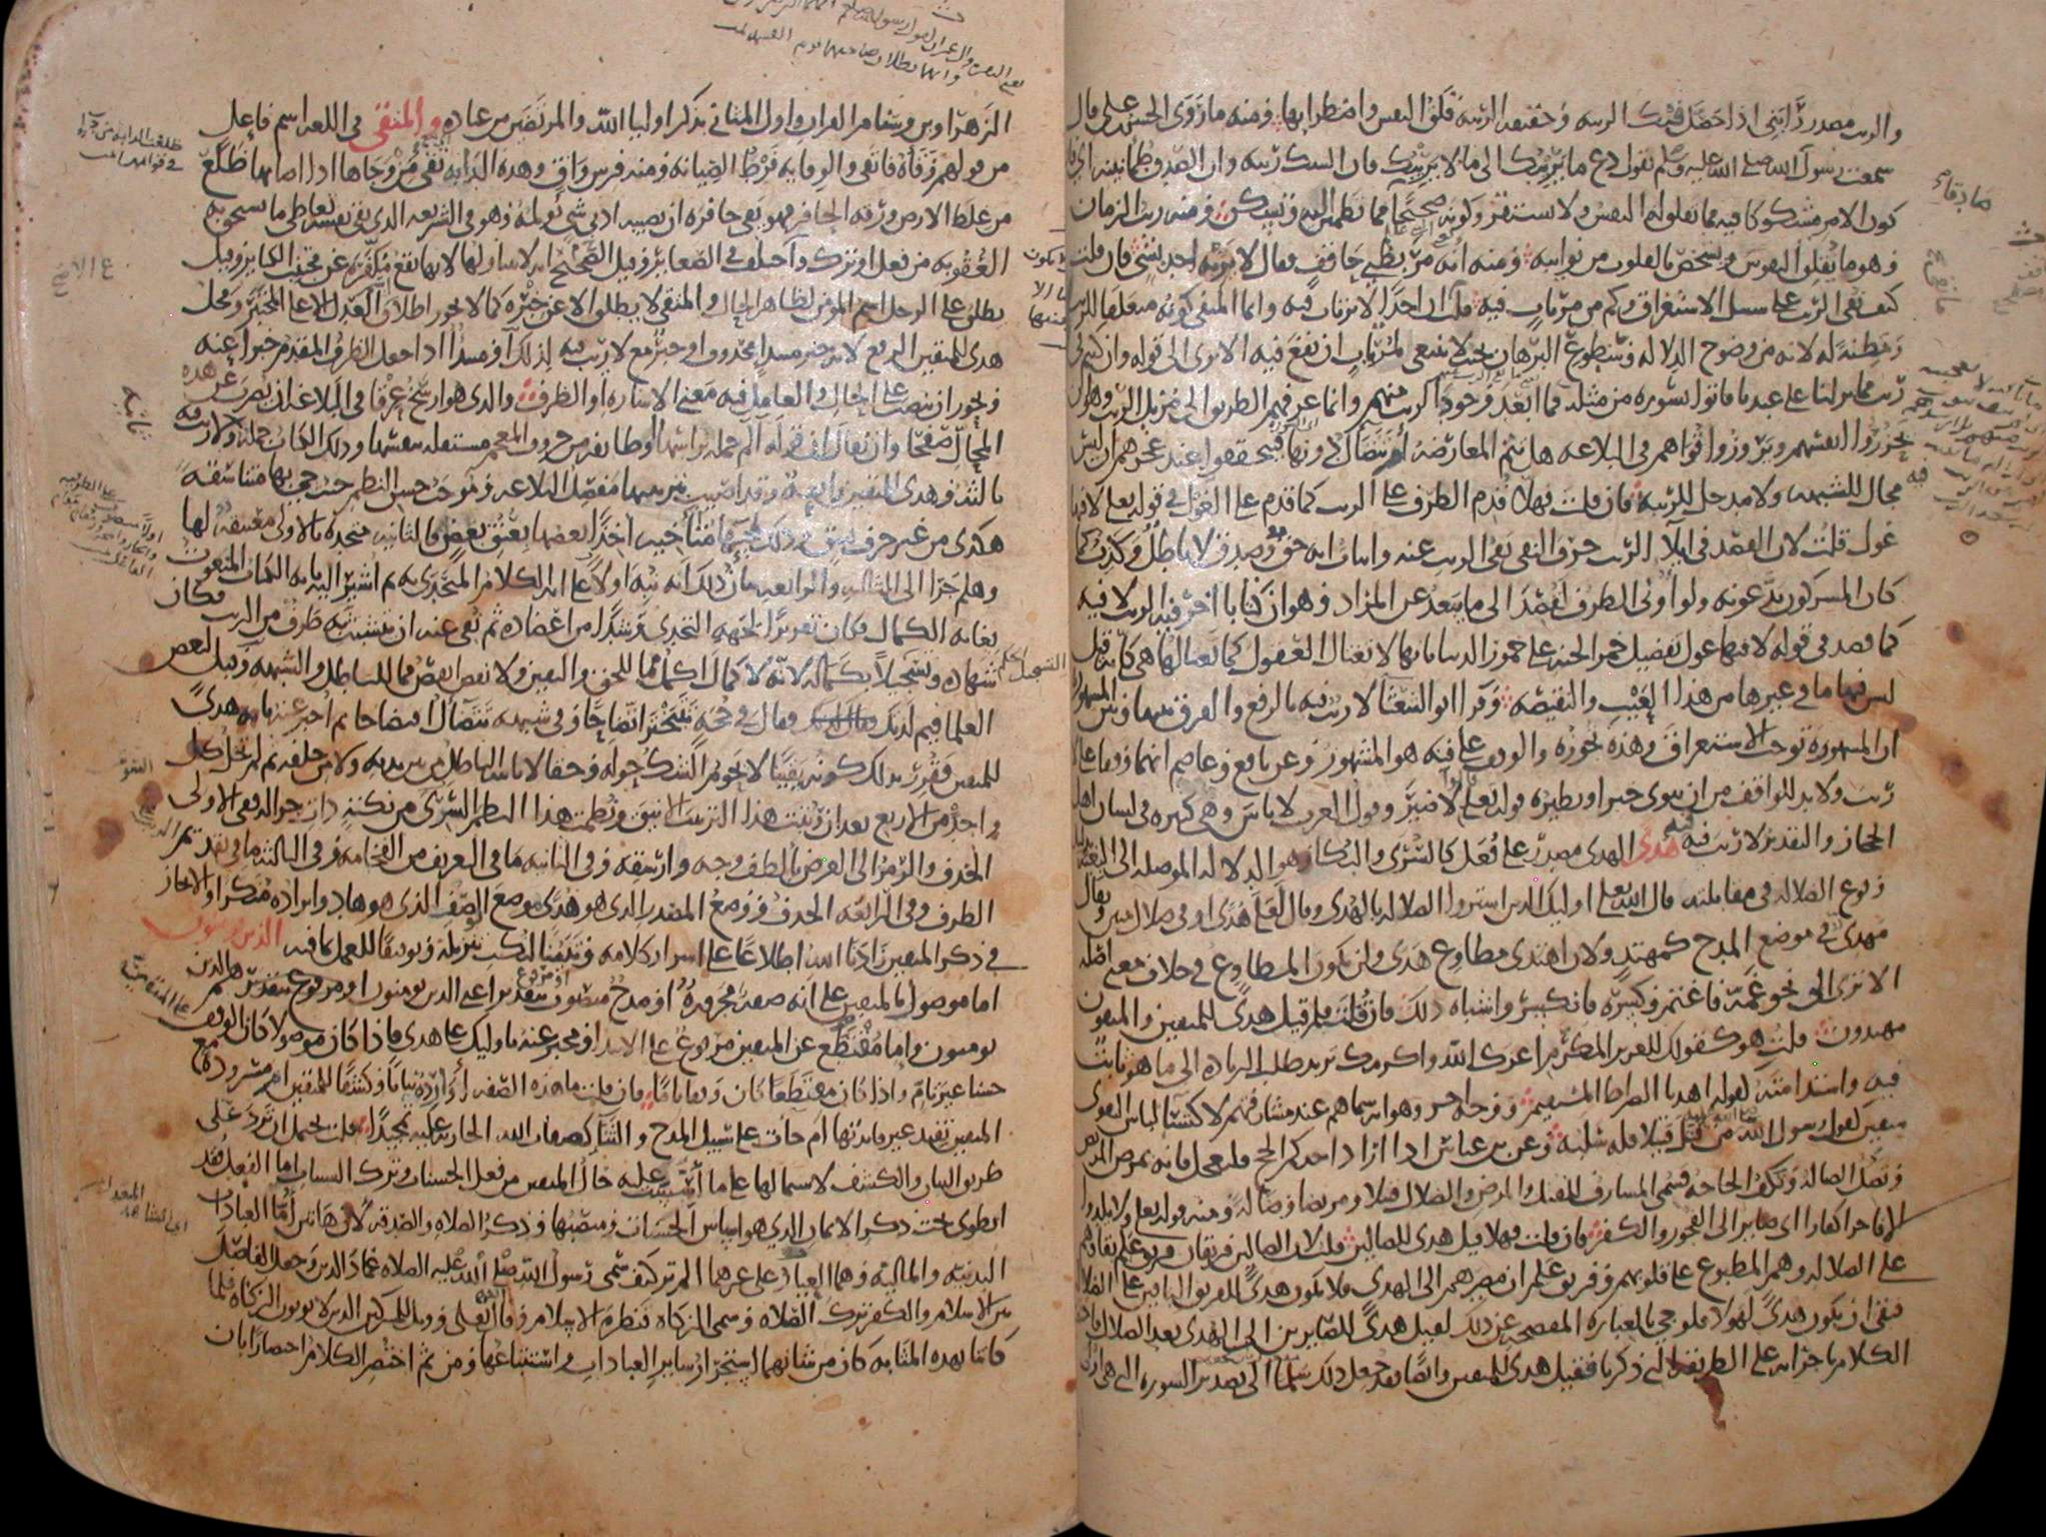 والريب مصدر رابني اذا حصل فيك الريبه وحقيقه الريبه قلق النفس واضطرابها ومنه ما روى الحسن بن علي قال
سمعت رسول الله صلى الله عليه وسلم يقول دع ما يريبك الى ما لا يريبك فان الشك ريبه وان الصدق طمانينه اي فان
كون الامر مشكوكا فيه مما تقلق له النفس ولا تستقر وكونه صحيحا مما تطمئن اليه وتسكن ومنه ريب الزمان
وهو ما يقلق النفوس ويشخص بالقلوب من نوايبه ومنه انه مر بظبي حاقف فقال لا يربه احد بشي فان قلت
كيف نفى الريب على سبيل الاستغراق وكم من مرتاب فيه قلت ان احدا لا يرتاب فيه وانما المنفي كونه متعلقا للريب
ومظنة له لانه من وضوح الدلاله وسطوع البرهان بحيث لا ينبغي لمرتاب ان يقع فيه الا ترى الى قوله وان كنتم في
ريب مما نزلنا على عبدنا فاتوا بسوره من مثله فما ابعد وجود الريب منهم وانما عرفهم الطريق الى مزيل الريب وهو ان
يحزروا انفسهم ويروزوا قواهم في البلاغه هل تتم المعارضه ام تتضال دونها فيتحققوا عند عجزهم ان ليس
فيه مجال للشبهه ولا مدخل للريبه فان قلت فهلا قدم الظرف على الريب كما قدم على الغول في قوله تعالى لا فيها
غول قلت لان القصد في ايلاء الريب حرف النفي نفي الريب عنه واثبات انه حق وصدق لا باطل وكذب كما
كان المشركون يدعونه ولو اولى الظرف لقصد الى ما يبعد عن المراد وهو ان كتابا اخر فيه الريب لا فيه
كما قصد في قوله لا فيها غول تفضيل خمر الجنه على خمور الدنيا بانها لا تغتال العقول كما تغتالها هي كانه قيل
ليس فيها ما في غيرها من هذا العيب والنقيصه وقرا ابو الشعثا لا ريب فيه بالرفع والفرق بينها وبين المشهوره
ان المشهوره توجب الاستغراق وهذه تجوزه والوقف على فيه هو المشهور وعن نافع وعاصم انهما وقفا على
ريب ولا بد للواقف من ان ينوي خبرا ونظيره قوله تعالى قالوا لا ضير وقول العرب لا باس وهي كثيره في لسان اهل
الحجاز والتقدير لا ريب فيه فيه هدى الهدى مصدر على فعل كالسرى والبكا وهو الدلاله الموصله الى البغيه بدليل
وقوع الضلاله في مقابلته قال الله تعالى اوليك الذين اشتروا الضلاله بالهدى وقال لعلى هدى او في ضلال مبين ويقال
مهدي في موضع المدح كمهتد ولان اهتدى مطاوع هدى ولن يكون المطاوع في خلاف معنى اصله
الا ترى الى نحو غمه فاغتم وكسره فانكسر واشباه ذلك فان قلت فلم قيل هدى للمتقين والمتقون
مهتدون قلت هو كقولك للعزيز المكرم اعزك الله واكرمك تريد طلب الزياده الى ما هو ثابت
فيه واستدامته كقوله اهدنا الصراط المستقيم ووجه اخر وهو انه سماهم عند مشارفتهم لاكتساء لباس التقوى
متقين كقول رسول الله من قتل قتيلا فله سلبه وعن ابن عباس اذا اراد احدكم الحج فليعجل فانه يمرض المريض
وتضل الضاله وتكف الحاجه فسمى المشارف للقتل والمرض والضلال قتيلا ومريضا وضاله ومنه قوله تعالى ولا يلدوا
الا فاجرا كفارا اي صايرا الى الفجور والكفر فان قلت فهلا قيل هدى للضالين قلت لان الضالين فريقان فريق علم بقاوهم
على الضلاله وهم المطبوع على قلوبهم وفريق علم ان مصيرهم الى الهدى فلا يكون هدى للفريق الباقين على الضلاله
فبقي ان يكون هدى لهولا فلو جي بالعباره المفصحه عن ذلك لقيل هدى للصايرين الى الهدى بعد الضلال فاختصر
الكلام باجرائه على الطريقه التي ذكرنا فقيل هدى للمتقين وايضا فقد جعل ذلك سلما الى تصدير السوره التي هي اولى
الزهراوين وسنام القران واول المثاني بذكر اوليا الله والمرتضين من عباده والمتقي في اللغه اسم فاعل
من قولهم وقاه فاتقى والوقايه فرط الصيانه ومنه فرس واق وهذه الدابه تقي من وجاها اذا اصابها ظلع
من غلظ الارض ورقه الحافر فهو يقي حافره ان يصيبه ادنى شي يولمه وهو في الشريعه الذي يقي نفسه تعاطي ما يستحق به
العقوبه من فعل او ترك واختلف في الصغاير وقيل الصحيح انه لا يتناولها لانها تقع مكفره عن مجتنب الكباير وقيل
يطلق على الرجل اسم المومن لظاهر الحال والمتقي لا يطلق الا عن خبره كما لا يجوز اطلاق العدل الا على المختبر ومحل
هدى للمتقين الرفع لانه خبر مبتدا محذوف او خبر مع لا ريب فيه لذلك او مبتدا اذا جعل الظرف المقدم خبرا عنه
ويجوز ان ينصب على الحال والعامل فيه معنى الاشاره او الظرف والذي هو ارسخ عرقا في البلاغه ان يضرب عن هذه
المحال صفحا وان يقال ان قوله الم جمله براسها او طايفه من حروف المعجم مستقله بنفسها وذلك الكتاب جمله ثانيه ولا ريب فيه
ثالثه وهدى للمتقين رابعه وقد اصيب بترتيبها مفصل البلاغه وموجب حسن النظم حيث جي بها متناسقه
هكذى من غير حرف نسق وذلك لمجيها متاخيه اخذا بعضها بعنق بعض فالثانيه متحده بالاولى معتنقه لها
وهلم جرا الى الثالثه والرابعه بيان ذلك انه نبه اولا على انه الكلام المتحدى به ثم اشير اليه بانه الكتاب المنعوت
بغايه الكمال فكان تقريرا لجهه التحدي وشدا من اعضاده ثم نفى عنه ان يتشبث به طرف من الريب فكان
شهاده وتسجيلا بكماله لانه لا كمال اكمل مما للحق واليقين ولا نقص انقص مما للباطل والشبهه وقيل لبعض
العلما فيم لذتك فقال في حجه تتبختر اتضاحا وفي شبهه تتضال افتضاحا ثم اخبر عنه بانه هدى
للمتقين فقرر بذلك كونه يقينا لا يحوم الشك حوله وحقا لا ياتيه الباطل من بين يديه ولا من خلفه ثم لم تخل كل
واحده من الاربع بعد ان رتبت هذا الترتيب الانيق ونظمت هذا النظم السري من نكته ذات جزاله ففي الاولى
الحذف والرمز الى الغرض بالطف وجه وارشقه وفي الثانيه ما في التعريف من الفخامه وفي الثالثه ما في تقديم
الظرف وفي الرابعه الحذف ووضع المصدر الذي هو هدى موضع الوصف الذي هو هاد وايراده منكرا والايجاز
في ذكر المتقين زادنا الله اطلاعا على اسرار كلامه وتبيينا لنكت تنزيله وتوفيقا للعمل بما فيه الذين يومنون
اما موصول بالمتقين على انه صفه مجروره او مدح منصوب او مرفوع بتقدير اعني الذين يومنون او مرفوع بتقدير هم الذين
يومنون واما مقتطع عن المتقين مرفوع على الابتدا ومخبر عنه باوليك على هدى فاذا كان موصولا كان الوقف
حسنا غير تام واذا كان مقتطعا كان وقفا تاما فان قلت ما هذه الصفه اوارده بيانا وكشفا للمتقين ام مسروده مع
المتقين تفيد غير فايدتها ام جات على سبيل المدح والثنا كصفات الله الجاريه عليه تمجيدا قلت يحتمل ان ترد على
طريق البيان والكشف لاشتمالها على ما اسست عليه حال المتقين من فعل الحسنات وترك السيات اما الفعل فقد
انطوى تحت ذكر الايمان الذي هو اساس الحسنات ومنصبها وذكر الصلاه والصدقه لان هاتين اما العبادات
البدنيه والماليه وهما العيار على غيرهما الم تر كيف سمى رسول الله صلى الله عليه الصلاه عماد الدين وجعل الفاصل
بين الاسلام والكفر ترك الصلاه وسمى الزكاه قنطره الاسلام وقال الله تعالى وويل للمشركين الذين لا يوتون الزكاه فلما
كانتا بهذه المثابه كان من شانهما استجرار ساير العبادات واستتباعها ومن ثم اختصر الكلام اختصارا بان